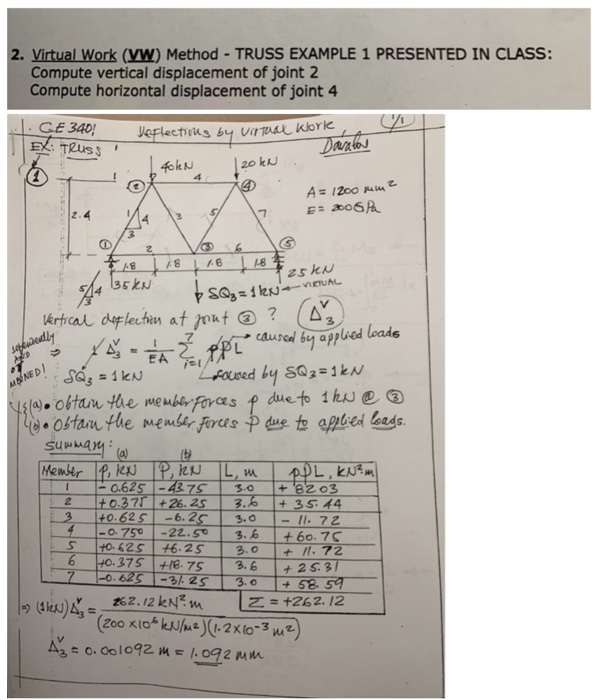 2. Virtual Work (VW) Method - TRUSS EXAMPLE 1 PRESENTED IN CLASS:
Compute vertical displacement of joint 2
Compute horizontal displacement of joint 4
CE 340! Deflections by Virtual Work 1/1
EX: TRUSS
1
40kN 20 kN
2 4 4
A = 1200 mm²
E = 200 GPa
2.4
1 4 3 5 7
3
1 2 3 6 5
1.8 1.8 1.8 1.8
35 kN 25 kN
5 4
3
δQ₃ = 1 kN ← VIRTUAL
Vertical deflection at joint ③ ? Δ₃ᵛ
⇒ 1 Δ₃ᵛ = 1/EA Σ pPL caused by applied loads
i=1 7
δQ₃ = 1 kN caused by δQ₃ = 1 kN
(a) • obtain the member forces p due to 1 kN @ ③
(b) • obtain the member forces P due to applied loads.
Summary: (a) (b)
Member p, kN P, kN L, m pPL, kN²m
1 -0.625 -43.75 3.0 + 82.03
2 +0.375 +26.25 3.6 + 35.44
3 +0.625 -6.25 3.0 - 11.72
4 -0.750 -22.50 3.6 + 60.75
5 +0.625 +6.25 3.0 + 11.72
6 +0.375 +18.75 3.6 + 25.31
7 -0.625 -31.25 3.0 + 58.59
Σ = +262.12
⇒ (1kN) Δ₃ᵛ = 262.12 kN².m
(200 x10⁶ kN/m²)(1.2x10⁻³ m²)
Δ₃ᵛ = 0.001092 m = 1.092 mm